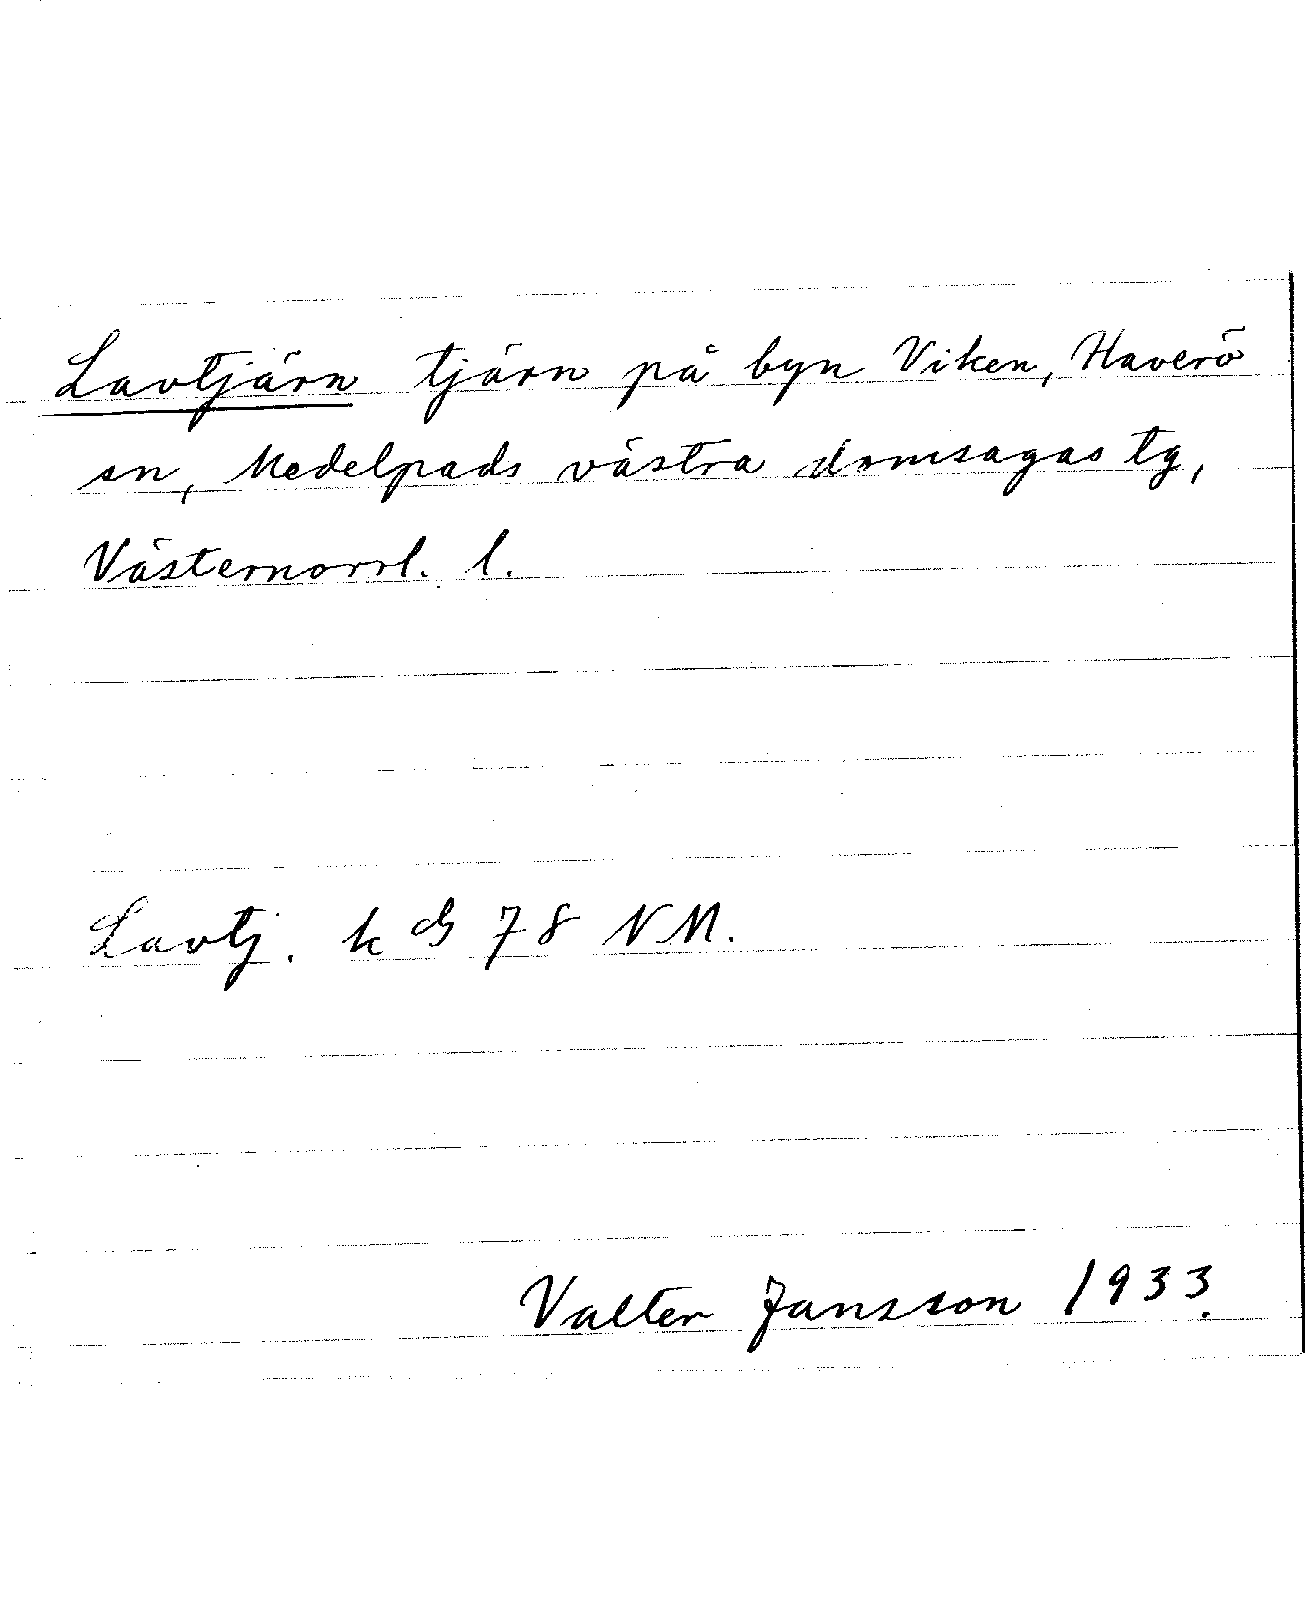 Lavtjärn tjärn på byn Viken, Haverö
sn, Medelpads västra domsagas tg,
Västernorrl. l.
Lavtj. k 78 NM.
Valter Jansson 1933.